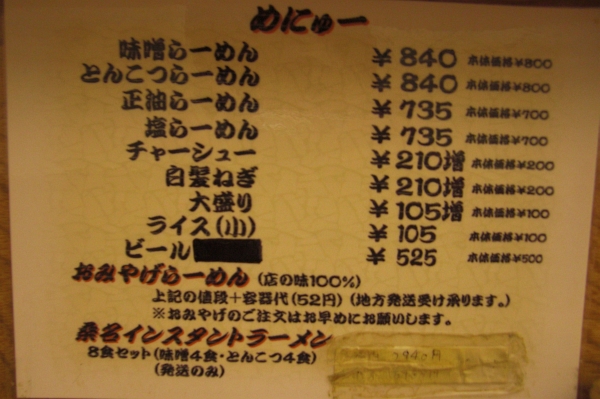 めにゅー
味噌らーめん ￥840 本体価格￥800
とんこつらーめん ￥840 本体価格￥800
正油らーめん ￥735 本体価格￥700
塩らーめん ￥735 本体価格￥700
チャーシュー ￥210増 本体価格￥200
白髪ねぎ ￥210増 本体価格￥200
大盛り ￥105増 本体価格￥100
ライス(小) ￥105 本体価格￥100
ビール ￥525 本体価格￥500
おみやげらーめん (店の味100%)
上記の値段+容器代(52円)(地方発送受け承ります。)
※おみやげのご注文はお早めにお願いします。
桑名インスタントラーメン
8食セット(味噌4食・とんこつ4食)
(発送のみ)